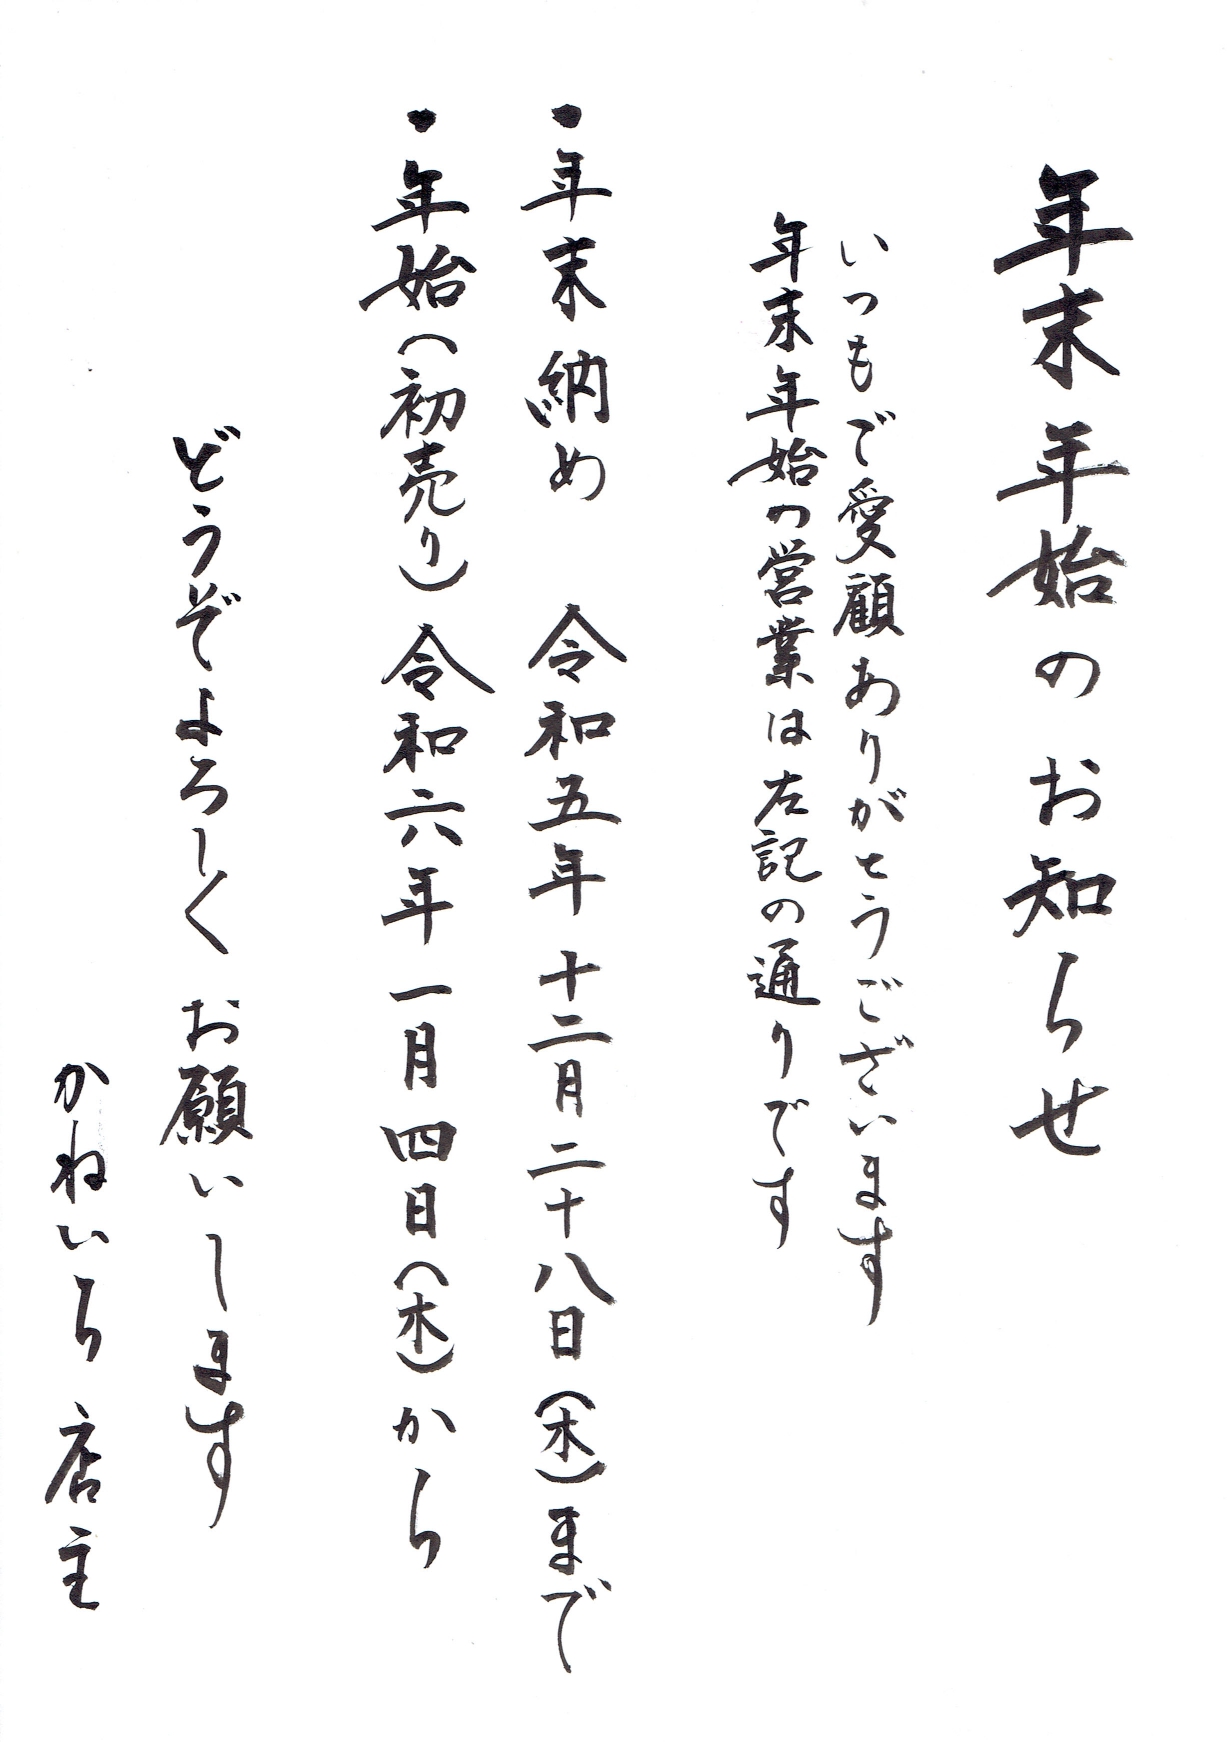 年末年始のお知らせ
いつもご愛顧ありがとうございます
年末年始の営業は左記の通りです
・年末納め 令和五年十二月二十八日(木)まで
・年始(初売り) 令和六年一月四日(木)から
どうぞよろしくお願いします
かねいち 店主